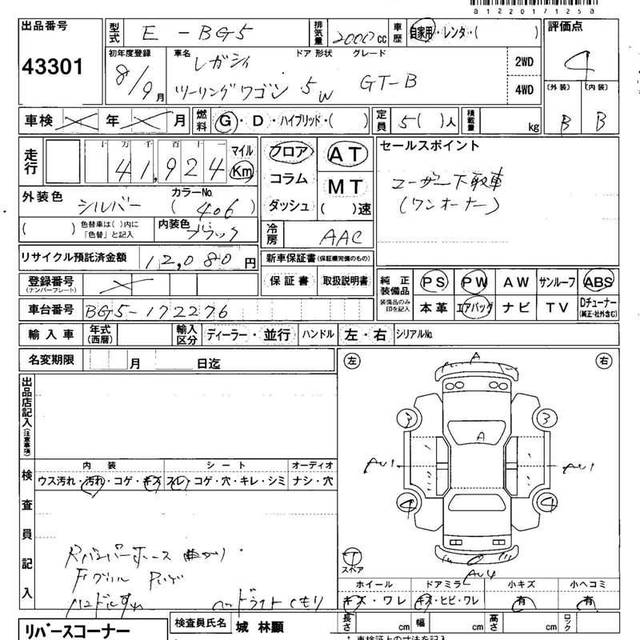 01220171250
出品番号
43301
型式 E-BG5
排気量 2000cc
車歴 自家用・レンタ・( )
評価点
4
初年度登録
8/9月
車名
レガシィ
ツーリングワゴン
ドア 形状
5W
グレード
GT-B
2WD
4WD
(外装) (内装)
B B
車検 年 月
燃料 G・D・ハイブリッド・( )
定員 5( )人
積載量 kg
走行
十万 万 千 百 十
41,924
マイル
Km
フロア
コラム
ダッシュ
AT
MT
( )速
セールスポイント
ユーザー下取車
(ワンオーナー)
外装色
シルバー
カラーNo.
(406)
( )
色替車は( )内に
「色替」と記入
内装色
ブラック
冷房
AAC
リサイクル預託済金額 12,080円
新車保証書(保証継続完備のもの)
保証書
取扱説明書
登録番号
(ナンバープレート)
車台番号 BG5-172276
純正装備品
装備品のみ
印を記入
PS PW AW サンルーフ ABS
本革 エアバッグ ナビ TV Dチューナー
(純正・社外含む)
輸入車
年式
(西暦)
輸入区分
ディーラー・並行
ハンドル
左・右
シリアルNo.
名変期限 月 日迄
出品店記入
(注意事項)
左
右
A
3
3
A
AU1
AU1
4
4
T
スペア
AU4
検査員記入
内装
シート
オーディオ
ウス汚れ・汚れ・コゲ・キズ
スレ・コゲ・穴・キレ・シミ
ナシ・穴
Rバンパーホース曲がり
ハンドルすれ
ヘッドライトくもり
ホイール
ドアミラー
小キズ
小ヘコミ
キズ・ワレ
キズ・ヒビ・ワレ
有
有
リバースコーナー
検査員氏名 城 林顕
長さ cm
幅 cm
高さ cm
ロック